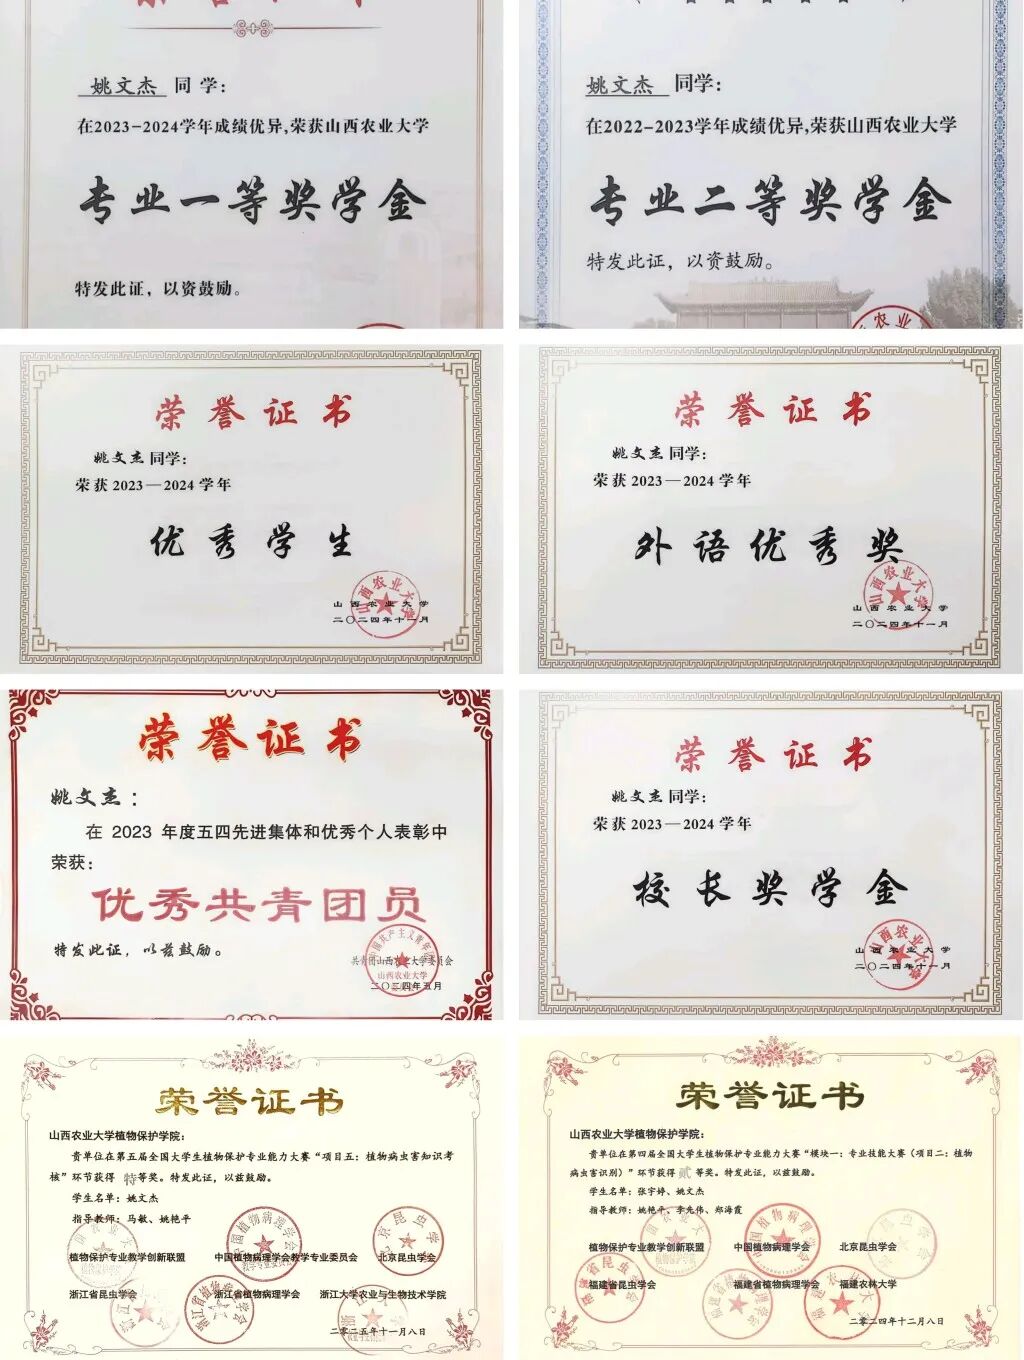 姚文杰 同学：
在2023-2024学年成绩优异,荣获山西农业大学
专业一等奖学金
特发此证，以资鼓励。
姚文杰 同学：
在2022-2023学年成绩优异,荣获山西农业大学
专业二等奖学金
特发此证，以资鼓励。
荣誉证书
姚文杰同学：
荣获2023—2024学年
优秀学生
山西农业大学
二〇二四年十一月
荣誉证书
姚文杰同学：
荣获2023—2024学年
外语优秀奖
山西农业大学
二〇二四年十一月
荣誉证书
姚文杰：
在 2023 年度五四先进集体和优秀个人表彰中
荣获：
优秀共青团员
特发此证，以兹鼓励。
共青团山西农业大学委员会
二〇二四年五月
荣誉证书
姚文杰同学：
荣获2023—2024学年
校长奖学金
山西农业大学
二〇二四年十一月
荣誉证书
山西农业大学植物保护学院：
贵单位在第五届全国大学生植物保护专业能力大赛“项目五：植物病虫害知识考
核”环节获得 特等奖。特发此证，以兹鼓励。
学生名单：姚文杰
指导教师：马敏、姚艳平
植物保护专业教学创新联盟 中国植物病理学会教学专业委员会 北京昆虫学会
浙江省昆虫学会 浙江省植物病理学会 浙江大学农业与生物技术学院
二〇二五年十一月八日
荣誉证书
山西农业大学植物保护学院：
贵单位在第四届全国大学生植物保护专业能力大赛“模块一：专业技能大赛（项目二：植物
病虫害识别）”环节获得贰等奖。特发此证，以兹鼓励。
学生名单：张宇婷、姚文杰
指导教师：姚艳平、李先伟、郑海霞
植物保护专业教学创新联盟 中国植物病理学会 北京昆虫学会
福建省昆虫学会 福建省植物病理学会 福建农林大学
二〇二四年十二月八日